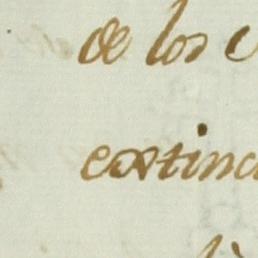 de los
extinc